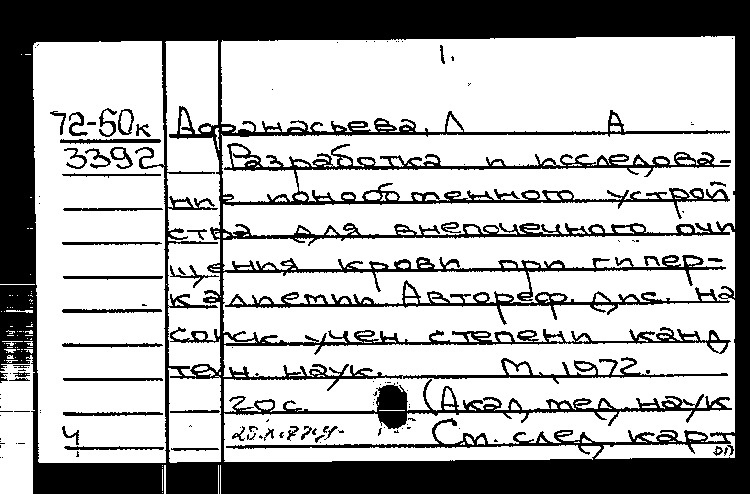 1.
72-50к Афанасьева, Л А
3392 Разработка и исследова-
ние ионообменного устрой-
ства для внепочечного очи
щения крови при гипер-
калиемии Автореф. дис. на
соиск. учен. степени канд
техн. наук. М., 1972.
20 с. (Акад. мед. наук
Ч См. след. карт